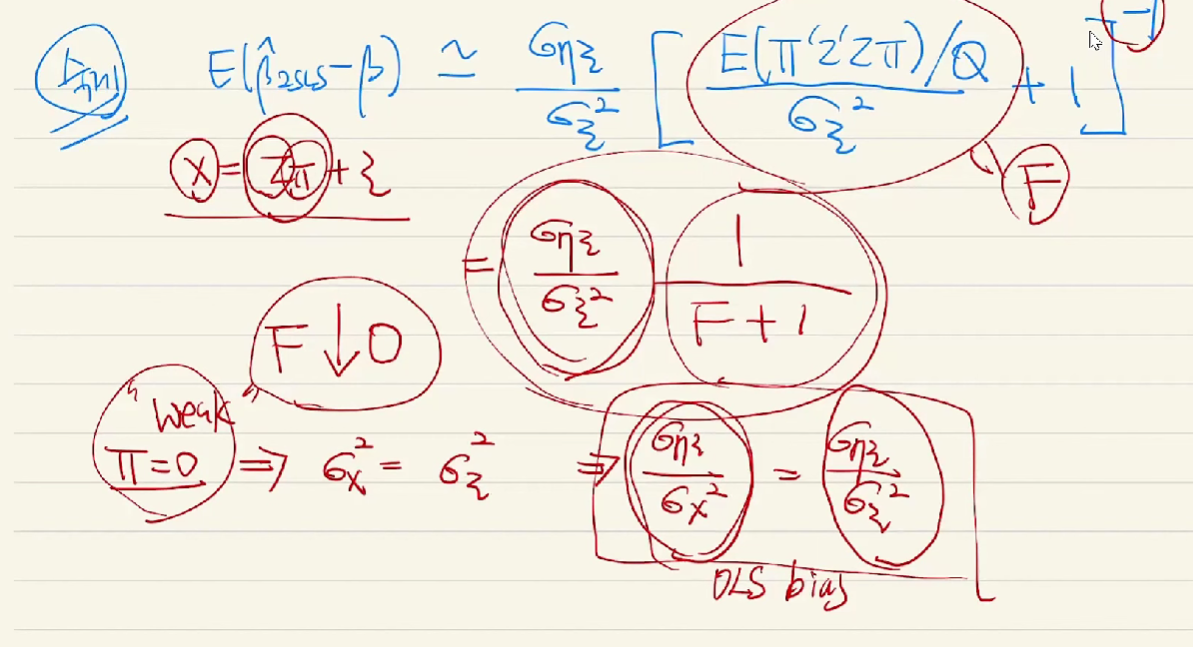 E(β̂₂ₛₗₛ − β) ≃ σηξ / σξ² [ E(π'Z'Zπ)/Q / σξ² + 1 ]⁻¹
X = Zπ + ξ
F
= σηξ / σξ² 1 / F + 1
F ↓ 0
"weak"
π = 0 ⇒ σx² = σξ² ⇒ σηξ / σx² = σηξ / σξ²
OLS bias